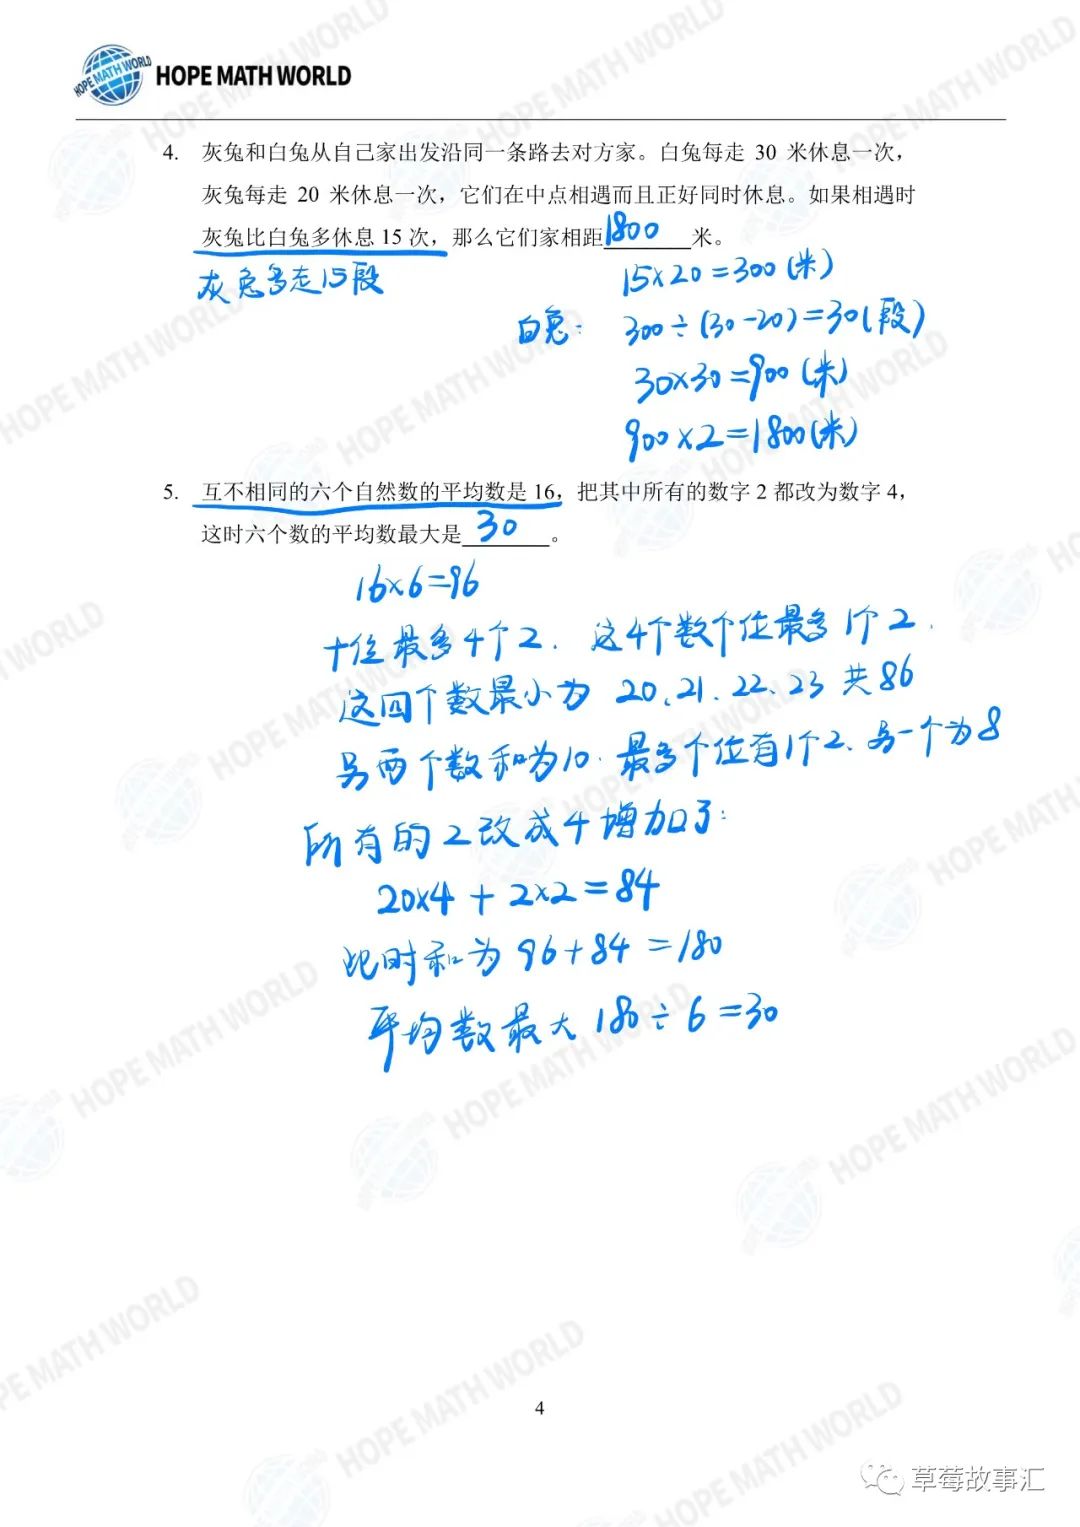 HOPE MATH WORLD
4. 灰兔和白兔从自己家出发沿同一条路去对方家。白兔每走 30 米休息一次，
灰兔每走 20 米休息一次，它们在中点相遇而且正好同时休息。如果相遇时
灰兔比白兔多休息 15 次，那么它们家相距1800米。
灰兔多走15段
15×20=300(米)
白兔: 300÷(30-20)=30(段)
30×30=900(米)
900×2=1800(米)
5. 互不相同的六个自然数的平均数是 16，把其中所有的数字 2 都改为数字 4，
这时六个数的平均数最大是 30 。
16×6=96
十位最多4个2. 这4个数个位最多1个2.
这四个数最小为 20、21、22、23 共86
另两个数和为10. 最多个位有1个2、另一个为8
所有的2改成4增加了:
20×4+2×2=84
此时和为 96+84=180
平均数最大 180÷6=30
4
草莓故事汇